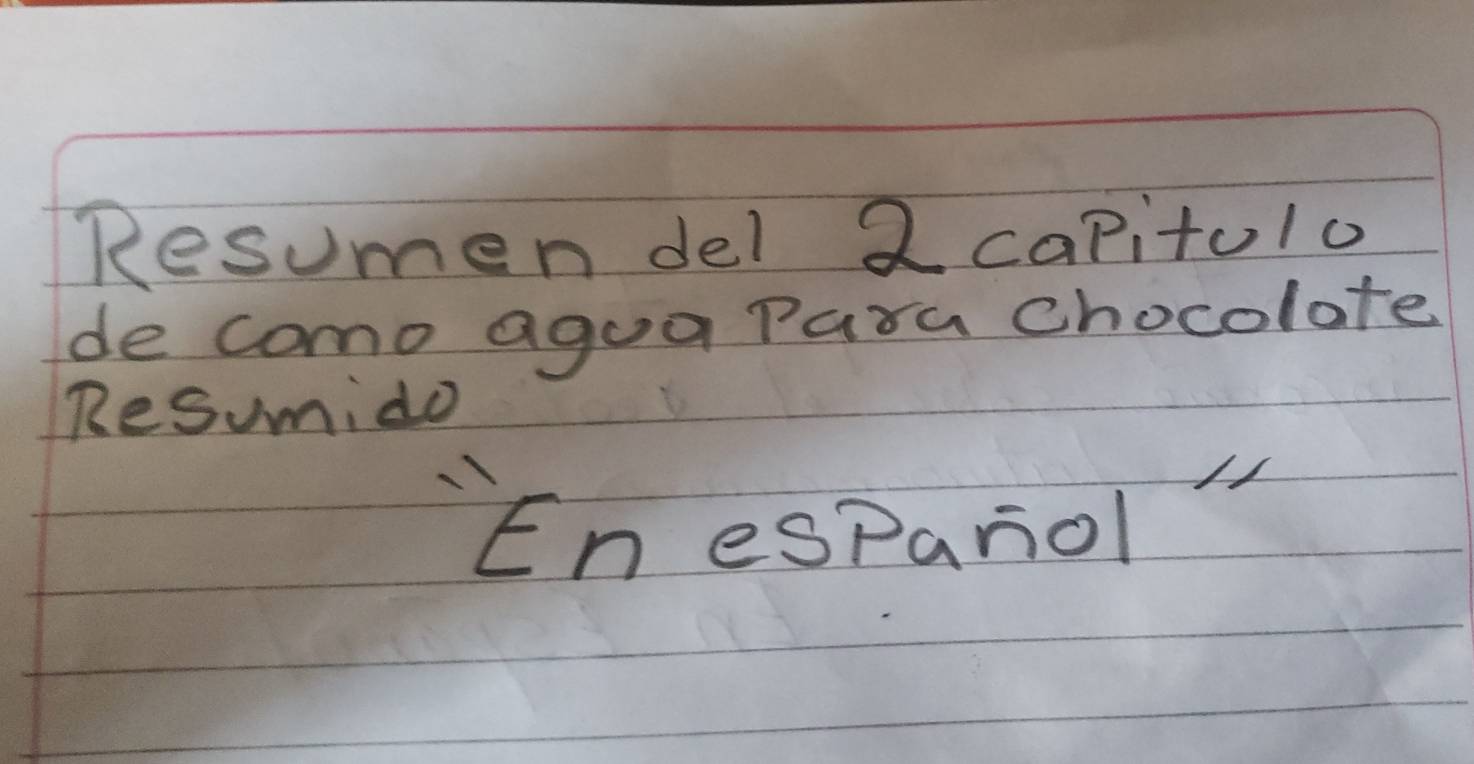 Resumen del 2 capitulo
de como agua para chocolate
Resumido
"En español"